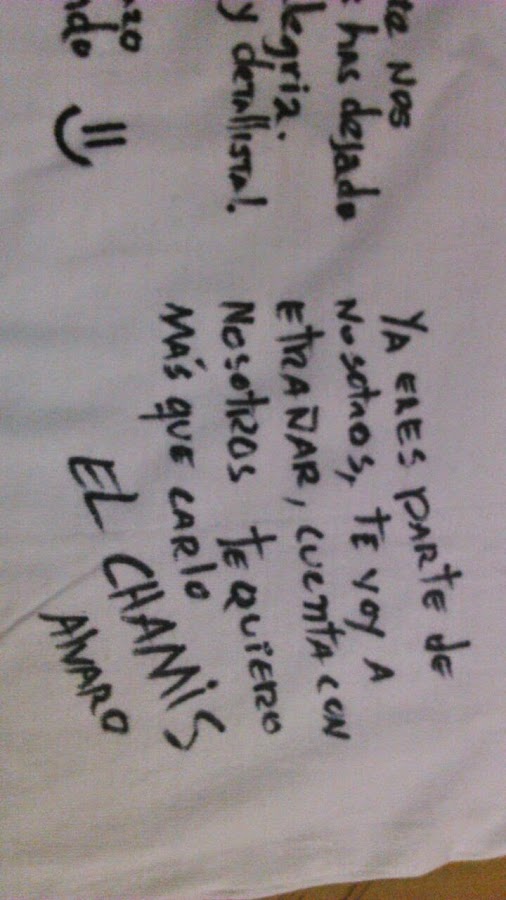 nos
has dejado
alegria.
y detallista!
YA ERES PARTE DE
NOSOTROS, TE VOY A
ETRAÑAR, CUENTA CON
NOSOTROS TE QUIERO
MÁS QUE CARLO
EL CHAMIS
ALVARO